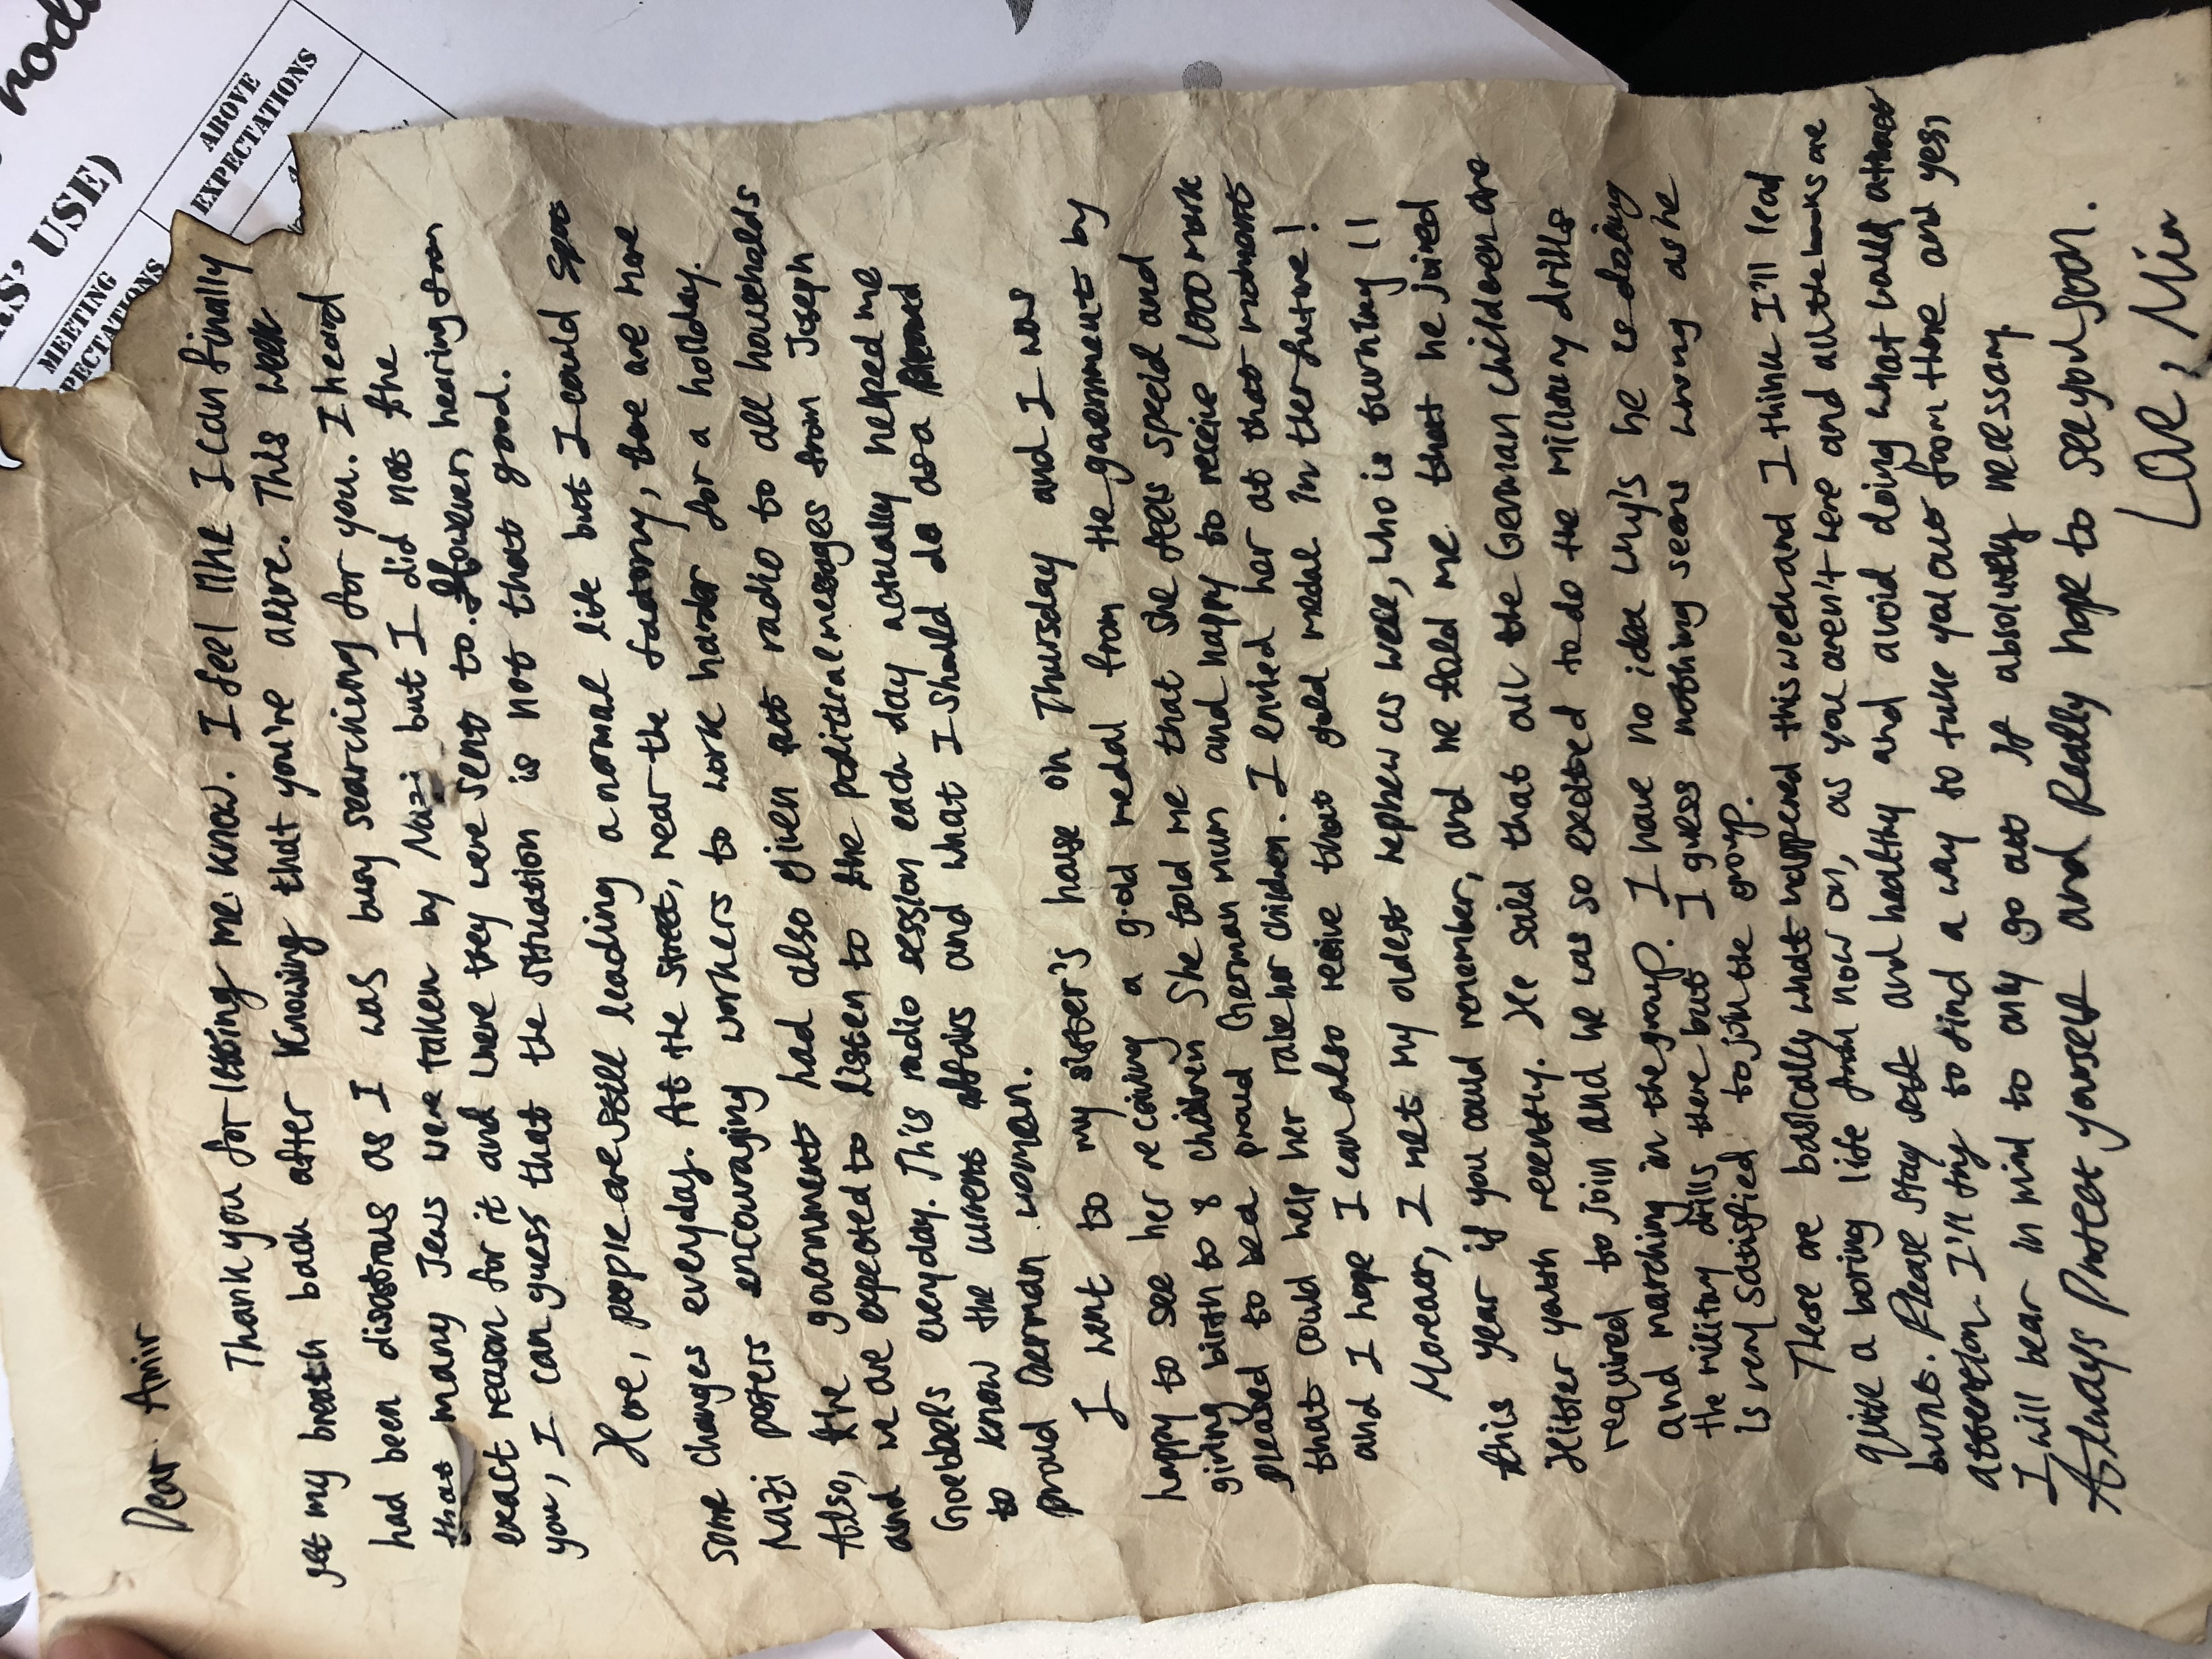 RS' USE)
MEETING
PECTATIONS
ABOVE
EXPECTATIONS
Dear Amir
Thank you for letting me know. I feel like I can finally
get my breath back after knowing that you're alive. This week
had been disastrous as I was busy searching for you. I heard
that many Jews were taken by Nazi but I did not the
exact reason for it and where they were sent to. However, hearing from
you, I can guess that the situation is not that good.
Here, people are still leading a normal life but I could spot
some changes everyday. At the street, near the factory, there are more
Nazi posters encouraging workers to work harder for a holiday.
Also, the government had also given out radio to all households
and we are expected to listen to the political messages from Joseph
Goebbels everyday. This radio session each day actually helped me
to know the current affairs and what I should do as a
proud German woman.
I went to my sister's house on Thursday and I was
happy to see her receiving a gold medal from the government by
giving birth to 8 children She told me that she feels special and
pleased to be a proud German mum and happy to receive 1000 mark
that could help her raise her children. I envied her at that moment
and I hope I can also receive that gold medal in the future!
Moreover, I met my oldest nephew as well, who is turning 11
this year if you could remember, and he told me that he joined
Hitler youth recently. He said that all the German children are
required to join and he was so excited to do the military drills
and marching in the group. I have no idea why's he is doing
the military drills there but I guess nothing seems wrong as he
is very satisfied to join the group.
These are basically what happened this week and I think I'll lead
quite a boring life from now on, as you aren't here and all the books are
burnt. Please stay safe and healthy and avoid doing what would attract
attention. I'll try to find a way to take you out from there and yes,
I will bear in mind to only go out if absolutely necessary.
Always Protect yourself and Really hope to see you soon.
Love, Mia